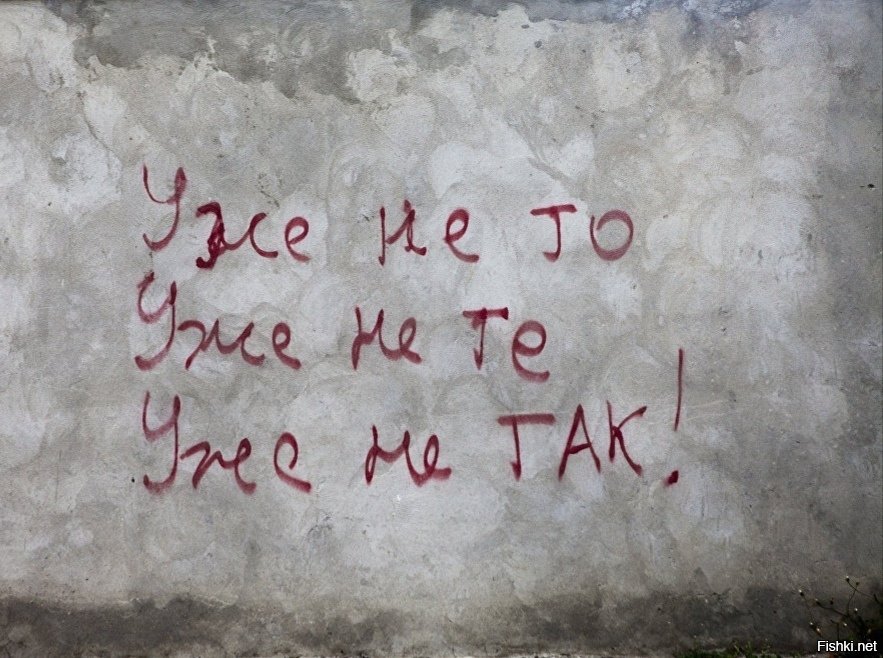 Уже не то
Уже не те
Уже не ТАК!
Fishki.net